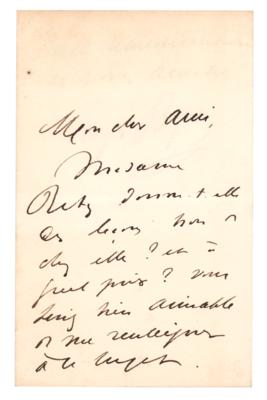 Mon cher Ami,
Madame
Rety donne t elle
des leçons hors d
chez elle ? et à
quel prix ? vous
seriez bien aimable
de me renseigner
à ce sujet.